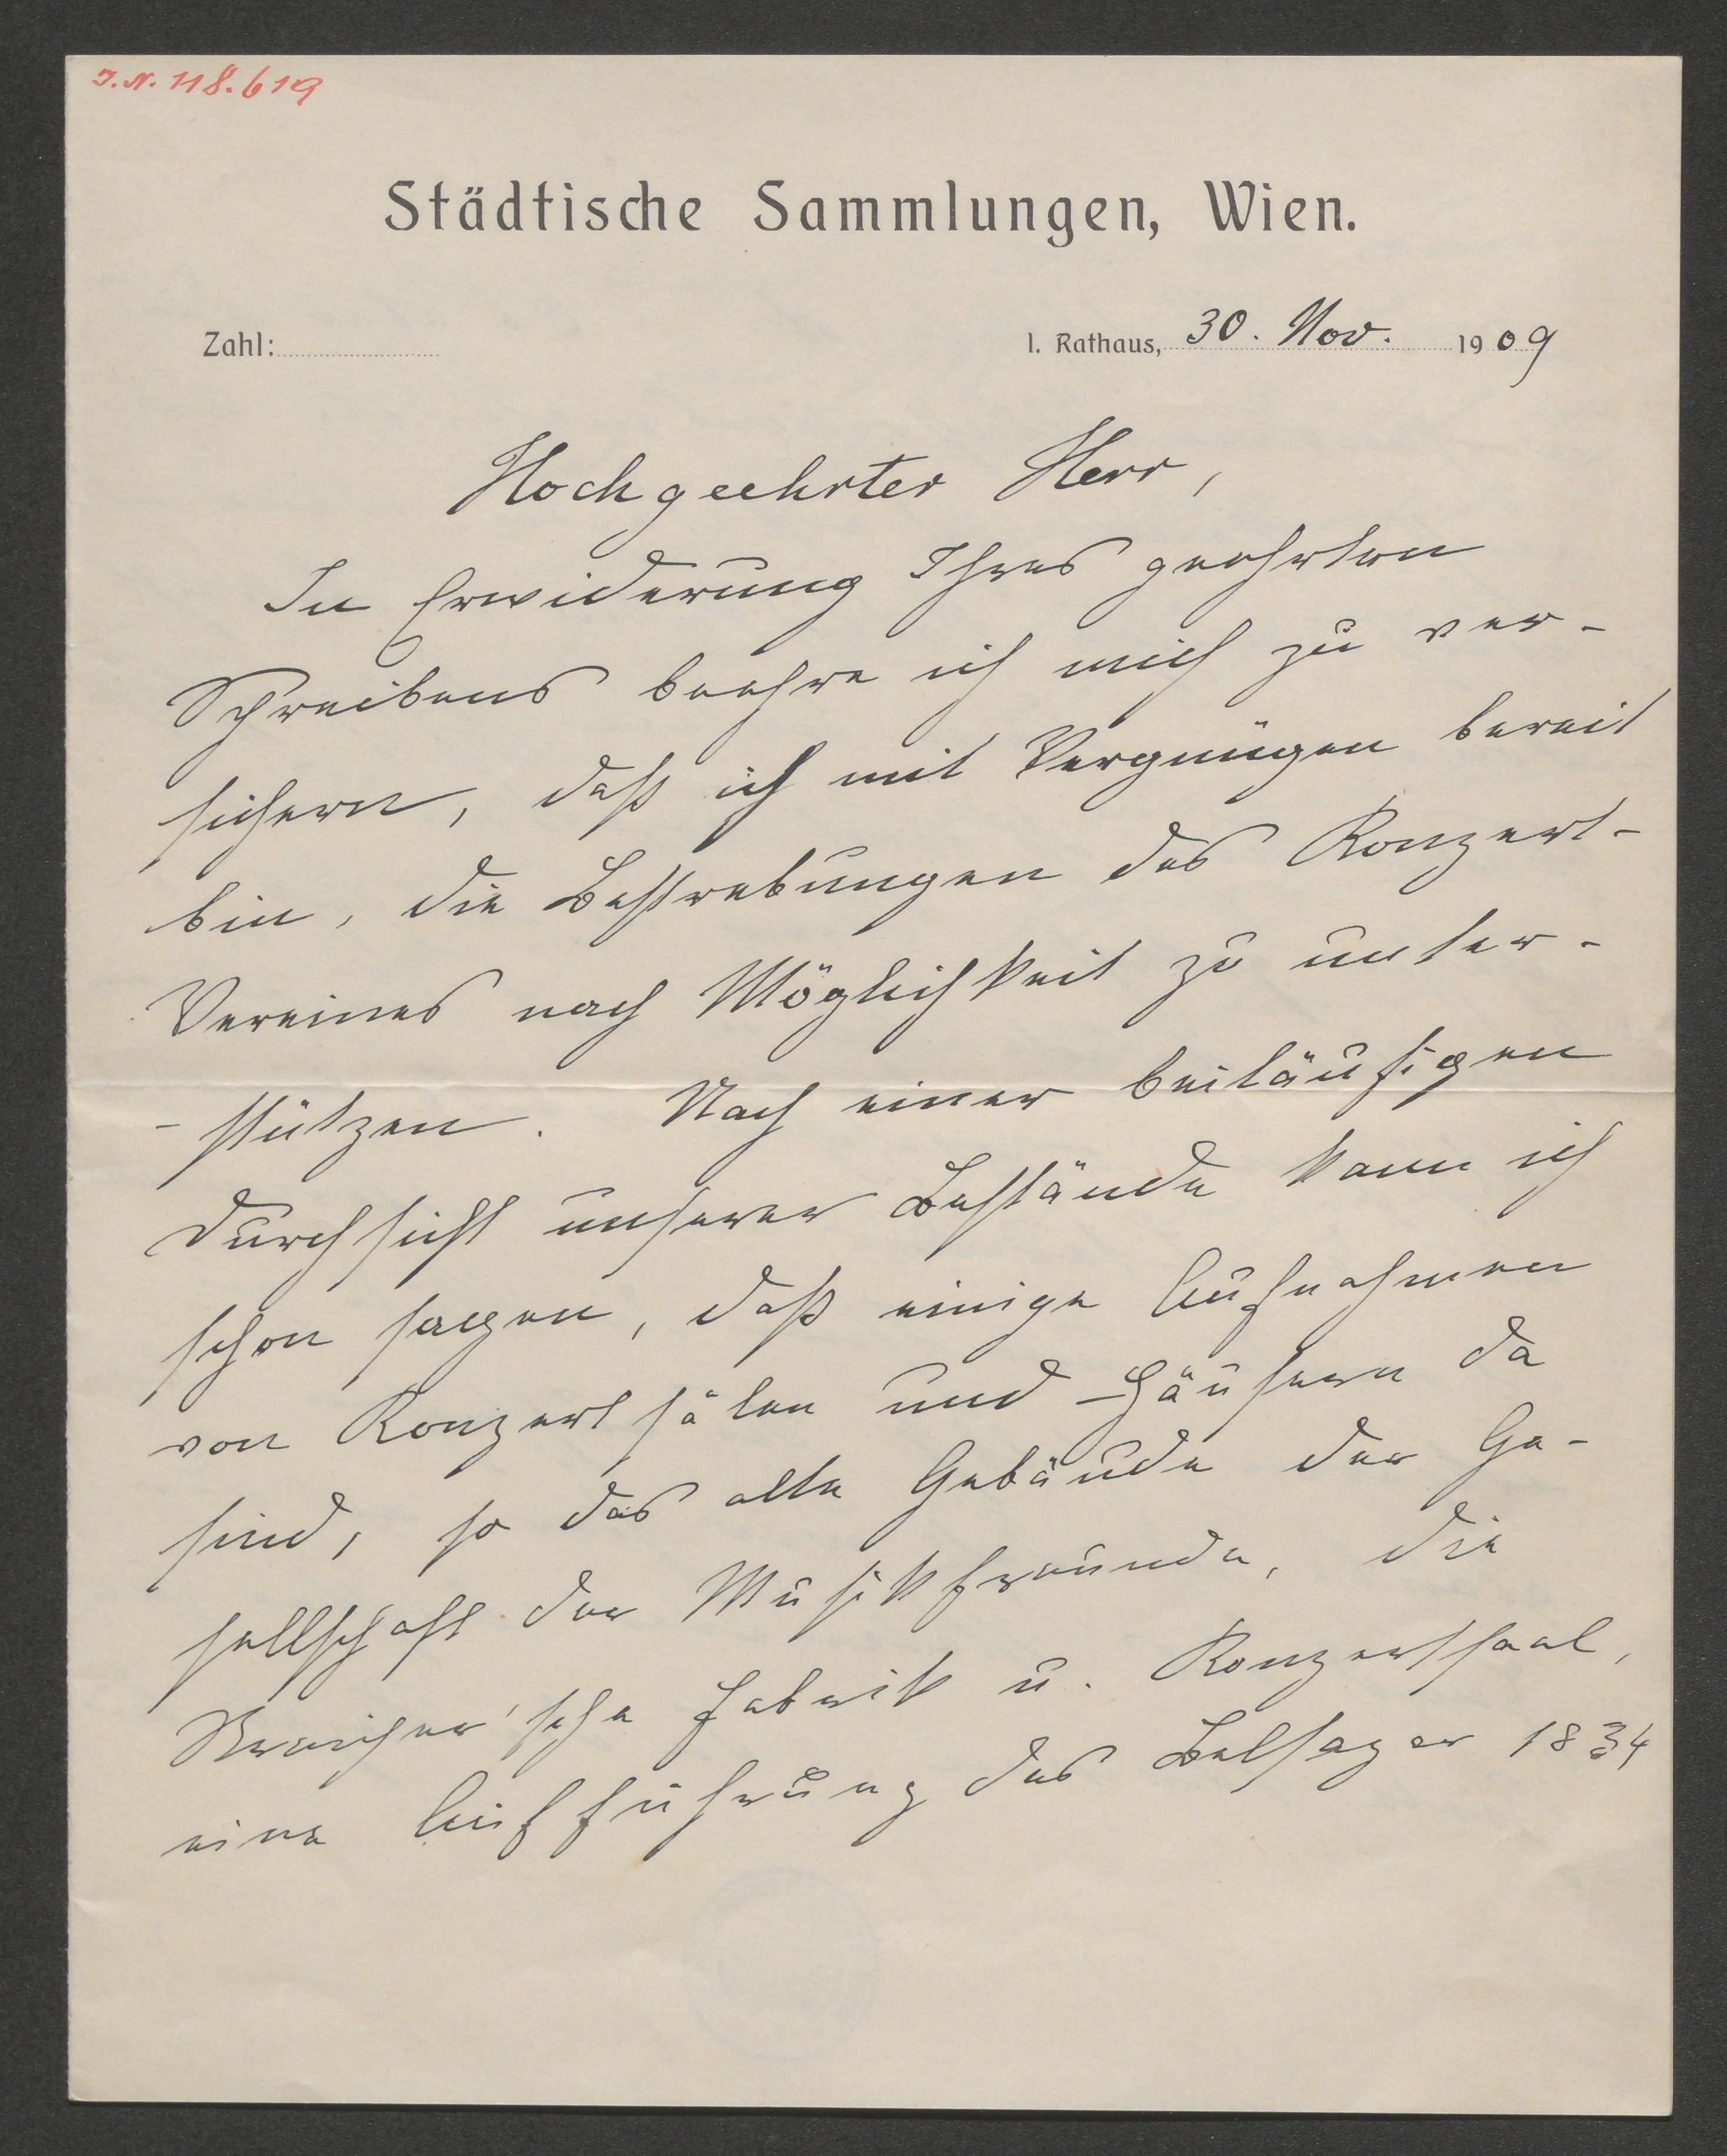 I.N. 118.619
Städtische Sammlungen, Wien.
Zahl: I. Rathaus, 30. Nov. 1909
Hochgeehrter Herr,
In Erwiderung Ihres geehrten
Schreibens beehre ich mich zu ver-
sichern, daß ich mit Vergnügen bereit
bin, die Bestrebungen des Konzert-
Vereines nach Möglichkeit zu unter-
-stützen. Nach einer beiläufigen
Durchsicht unserer Bestände kann ich
schon sagen, daß einige Aufnahmen
von Konzertsälen und -Häusern da
sind, so das alte Gebäude der Ge-
sellschaft der Musikfreunde, die
Streicher'sche Fabrik u. Konzertsaal,
eine Aufführung des Belsazer 1834